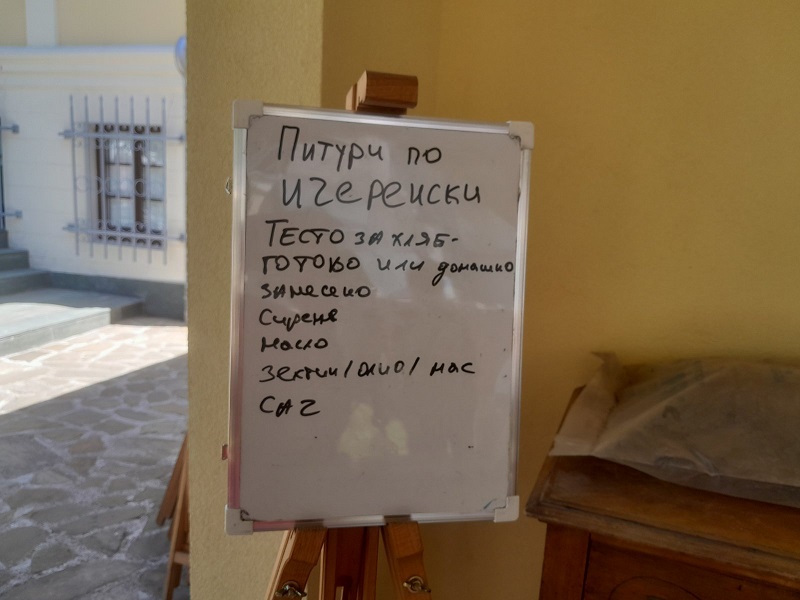 Питури по
ИЧЕРЕНСКИ
ТЕСТО ЗА ХЛЯБ-
ГОТОВО или домашно
ЗАМЕСЕНО
Сирене
Масло
Зехтин/олио/мас
САЧ